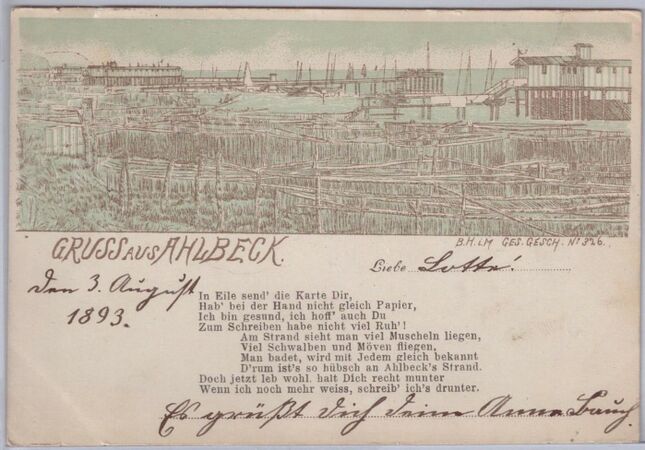 GRUSS AUS AHLBECK.
B.H.LM GES. GESCH. No 326.
Liebe Lotte!
den 3. August
1893.
In Eile send' die Karte Dir,
Hab' bei der Hand nicht gleich Papier,
Ich bin gesund, ich hoff' auch Du
Zum Schreiben habe nicht viel Ruh'!
Am Strand sieht man viel Muscheln liegen,
Viel Schwalben und Möven fliegen,
Man badet, wird mit Jedem gleich bekannt
D'rum ist's so hübsch an Ahlbeck's Strand.
Doch jetzt leb wohl, halt Dich recht munter
Wenn ich noch mehr weiss, schreib' ich's drunter.
Es grüßt Dich Deine Anna